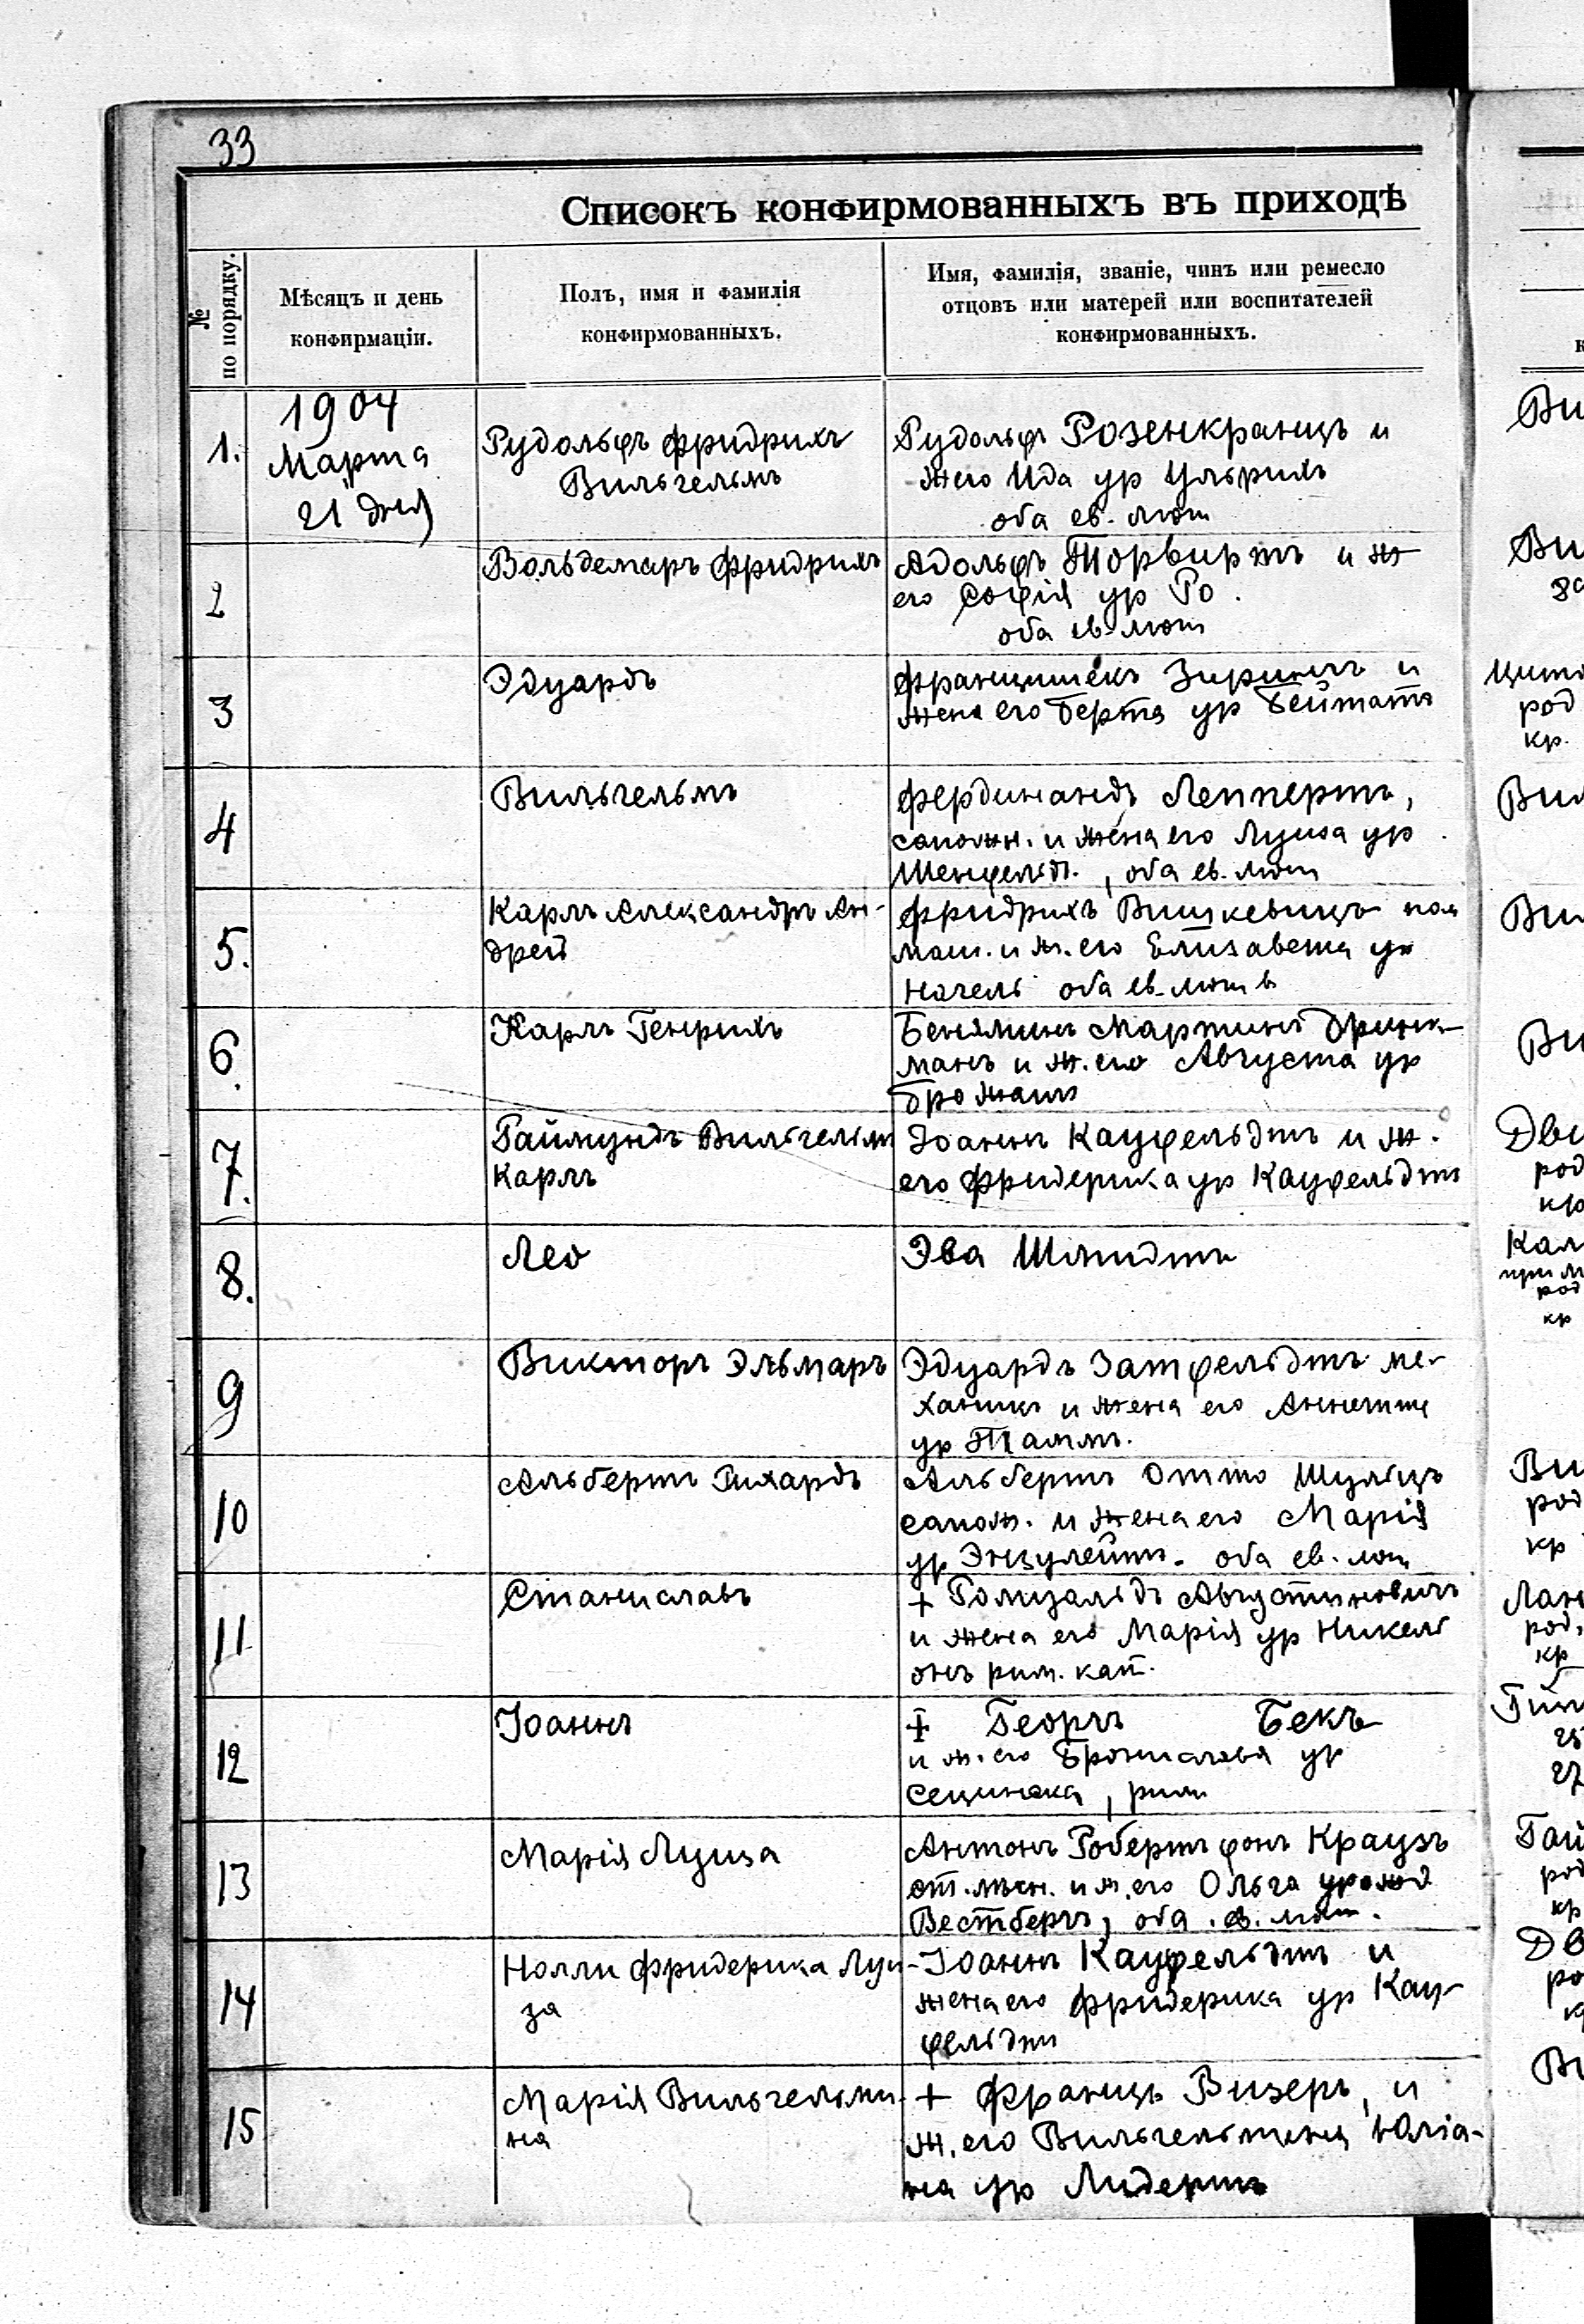 33
Списокъ конфирмованныхъ въ приходѣ
№ по порядку.
Мѣсяцъ и день
конфирмаціи.
Полъ, имя и фамилія
конфирмованныхъ.
Имя, фамилія, званіе, чинъ или ремесло
отцовъ или матерей или воспитателей
конфирмованныхъ.
1.
1904
Марта
21 дня
Рудольфъ Фридрихъ
Вильгельмъ
Рудольфъ Розенкранцъ и
ж его Ида ур Ульрихъ
оба ев. лют
Ви
2
Вольдемаръ Фридрихъ
Адольфъ Торвиртъ и ж
его Софія ур Ро.
оба ев. лют
Ви
3
Эдуардъ
Францишекъ и
жена его Берта ур
род
кр.
4
Вильгельмъ
Фердинандъ Леппертъ,
сапожн. и жена его Луиза ур
Шенфельдъ., оба ев. лют
Вил
5.
Карлъ Александръ Ан-
дрей
Фридрихъ Вишкевицъ пом
маш. и ж. его Елизавета ур
Нагель оба ев. лют
Ви
6.
Карлъ Генрихъ
Беняминъ Мартинъ Бринк-
манъ и ж. его Августа ур
Ви
7.
Раймундъ Вильгельмъ
Карлъ
Іоаннъ Кауфельдтъ и ж.
его Фридерика ур Кауфельдтъ
Дви
род
кр
8.
Лео
Эва Шмидтъ
Кал
при м
род
кр
9
Викторъ Эльмаръ
Эдуардъ Затфельдтъ ме-
ханикъ и жена его
ур Таммъ.
10
Альбертъ Рихардъ
Альбертъ Отто Шульцъ
сапож. и жена его Марія
ур оба ев. лют
Ви
род
кр
11
Станиславъ
+ Ромуальдъ Августиновичъ
и жена его Марія ур Никель
онъ рим. кат.
Лан
род.
кр
12
Іоаннъ
+ Георгъ Бекъ
и ж. его Брониславья ур
рим
25
27
13
Марія Луиза
Антонъ Робертъ фонъ Краузъ
и ж. его Ольга урожд
Вестбергъ, оба ев. лют.
Гай
род
кр
14
Нолли Фридерика Луи-
за
Іоаннъ Кауфельдтъ и
жена его Фридерика ур Кау-
фельдтъ
Дв
ро
к
15
Марія Вильгельми-
на
+ Францъ Визеръ, и
ж. его Вильгельмина Юліа-
на ур Лидертъ
Ви